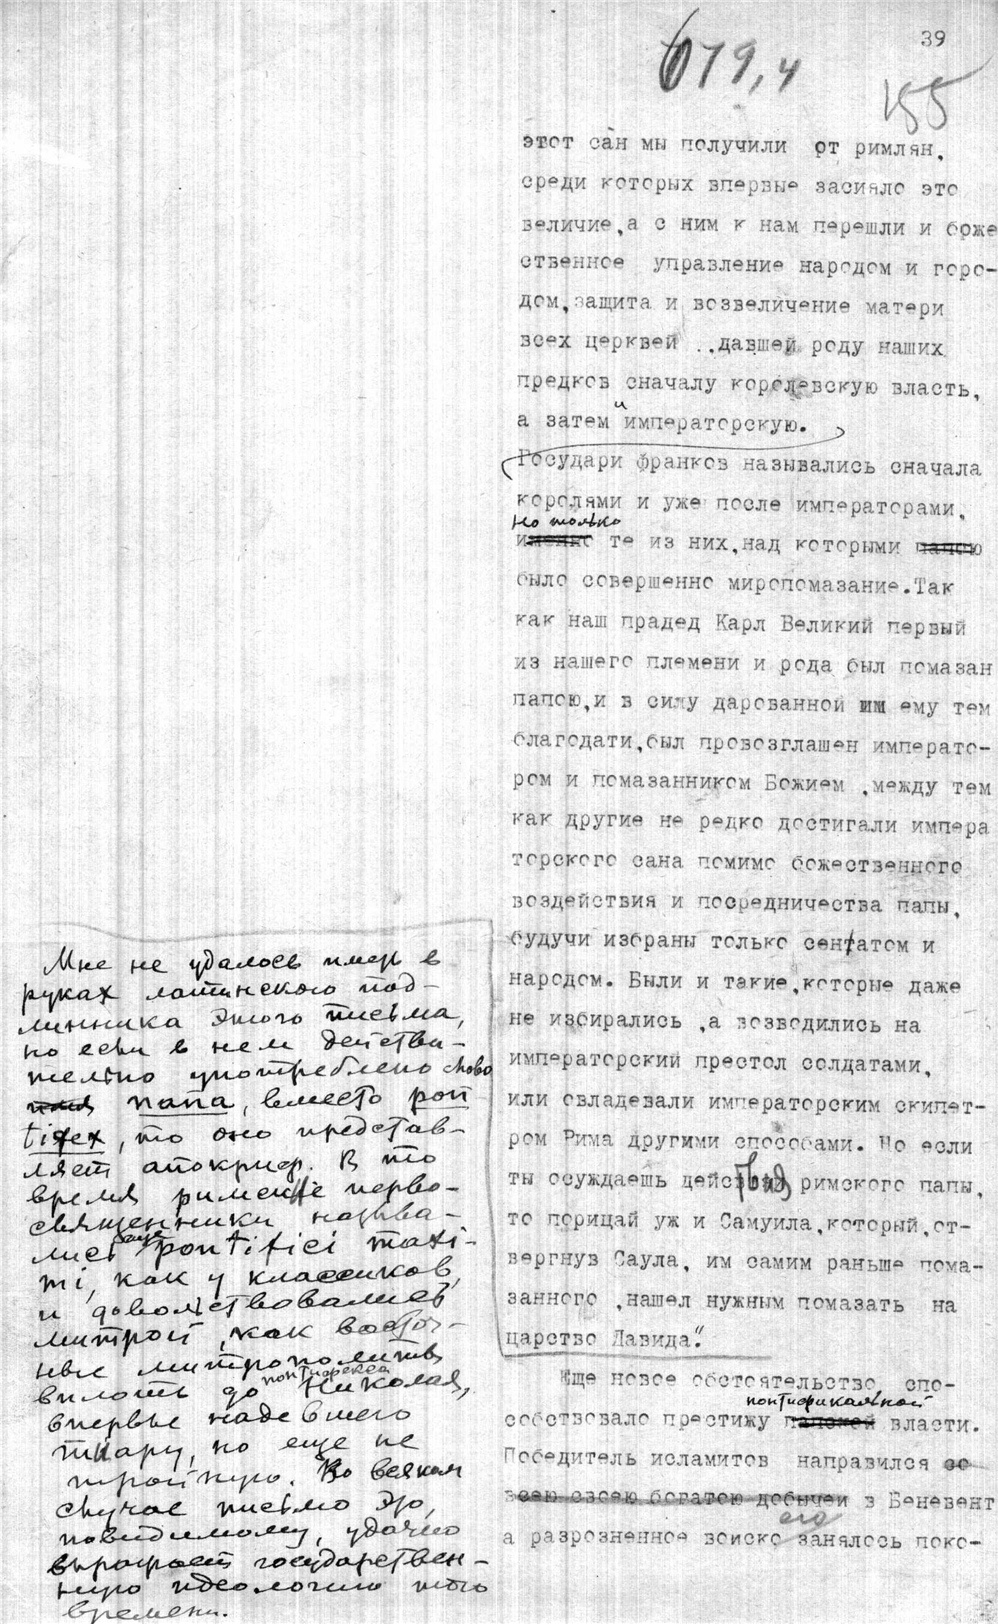 39
679,4
155
этот сан мы получили от римлян,
среди которых впервые засияло это
величие,а с ним к нам перешли и боже
ственное управление народом и горо-
дом,защита и возвеличение матери
всех церквей ..давшей роду наших
предков сначалу королевскую власть,
а затем и императорскую.
Государи франков назывались сначала
королями и уже после императорами,
но только
именно те из них,над которыми папою
было совершенно миропомазание.Так
как наш прадед Карл Великий первый
из нашего племени и рода был помазан
папою,и в силу дарованной ему тем
благодати,был провозглашен императо-
ром и помазанником Божием ,между тем
как другие не редко достигали импера
торского сана помимо божественного
воздействия и посредничества папы,
будучи избраны только сенатом и
народом. Были и такие,которые даже
не избирались ,а возводились на
императорский престол солдатами,
или овладевали императорским скипет-
ром Рима другими способами. Но если
ты осуждаешь действия римского папы,
то порицай уж и Самуила,который,от-
вергнув Саула, им самим раньше пома-
занного ,нашел нужным помазать на
царство Давида."
Еще новое обстоятельство спо-
понтификальной
собствовало престижу папской власти.
Победитель исламитов направился со
всею своею богатою добычей в Беневент
его
а разрозненное войско занялось поко-
Мне не удалось иметь в
руках латинского под-
линника этого письма,
но если в нем действи-
тельно употреблено слово
папа, вместо pon
tifex, то оно представ-
ляет апокриф. В то
время римские перво-
священники называ-
лись еще pontifici maxi-
mi, как у классиков,
и довольствовались
митрой, как восточ-
ные митрополиты
вплоть до понтифекса Николая,
впервые надевшего
тиару, но еще не
тройную. Во всяком
случае письмо это,
повидимому, удачно
выражает государствен-
ную идеологию того
времени.